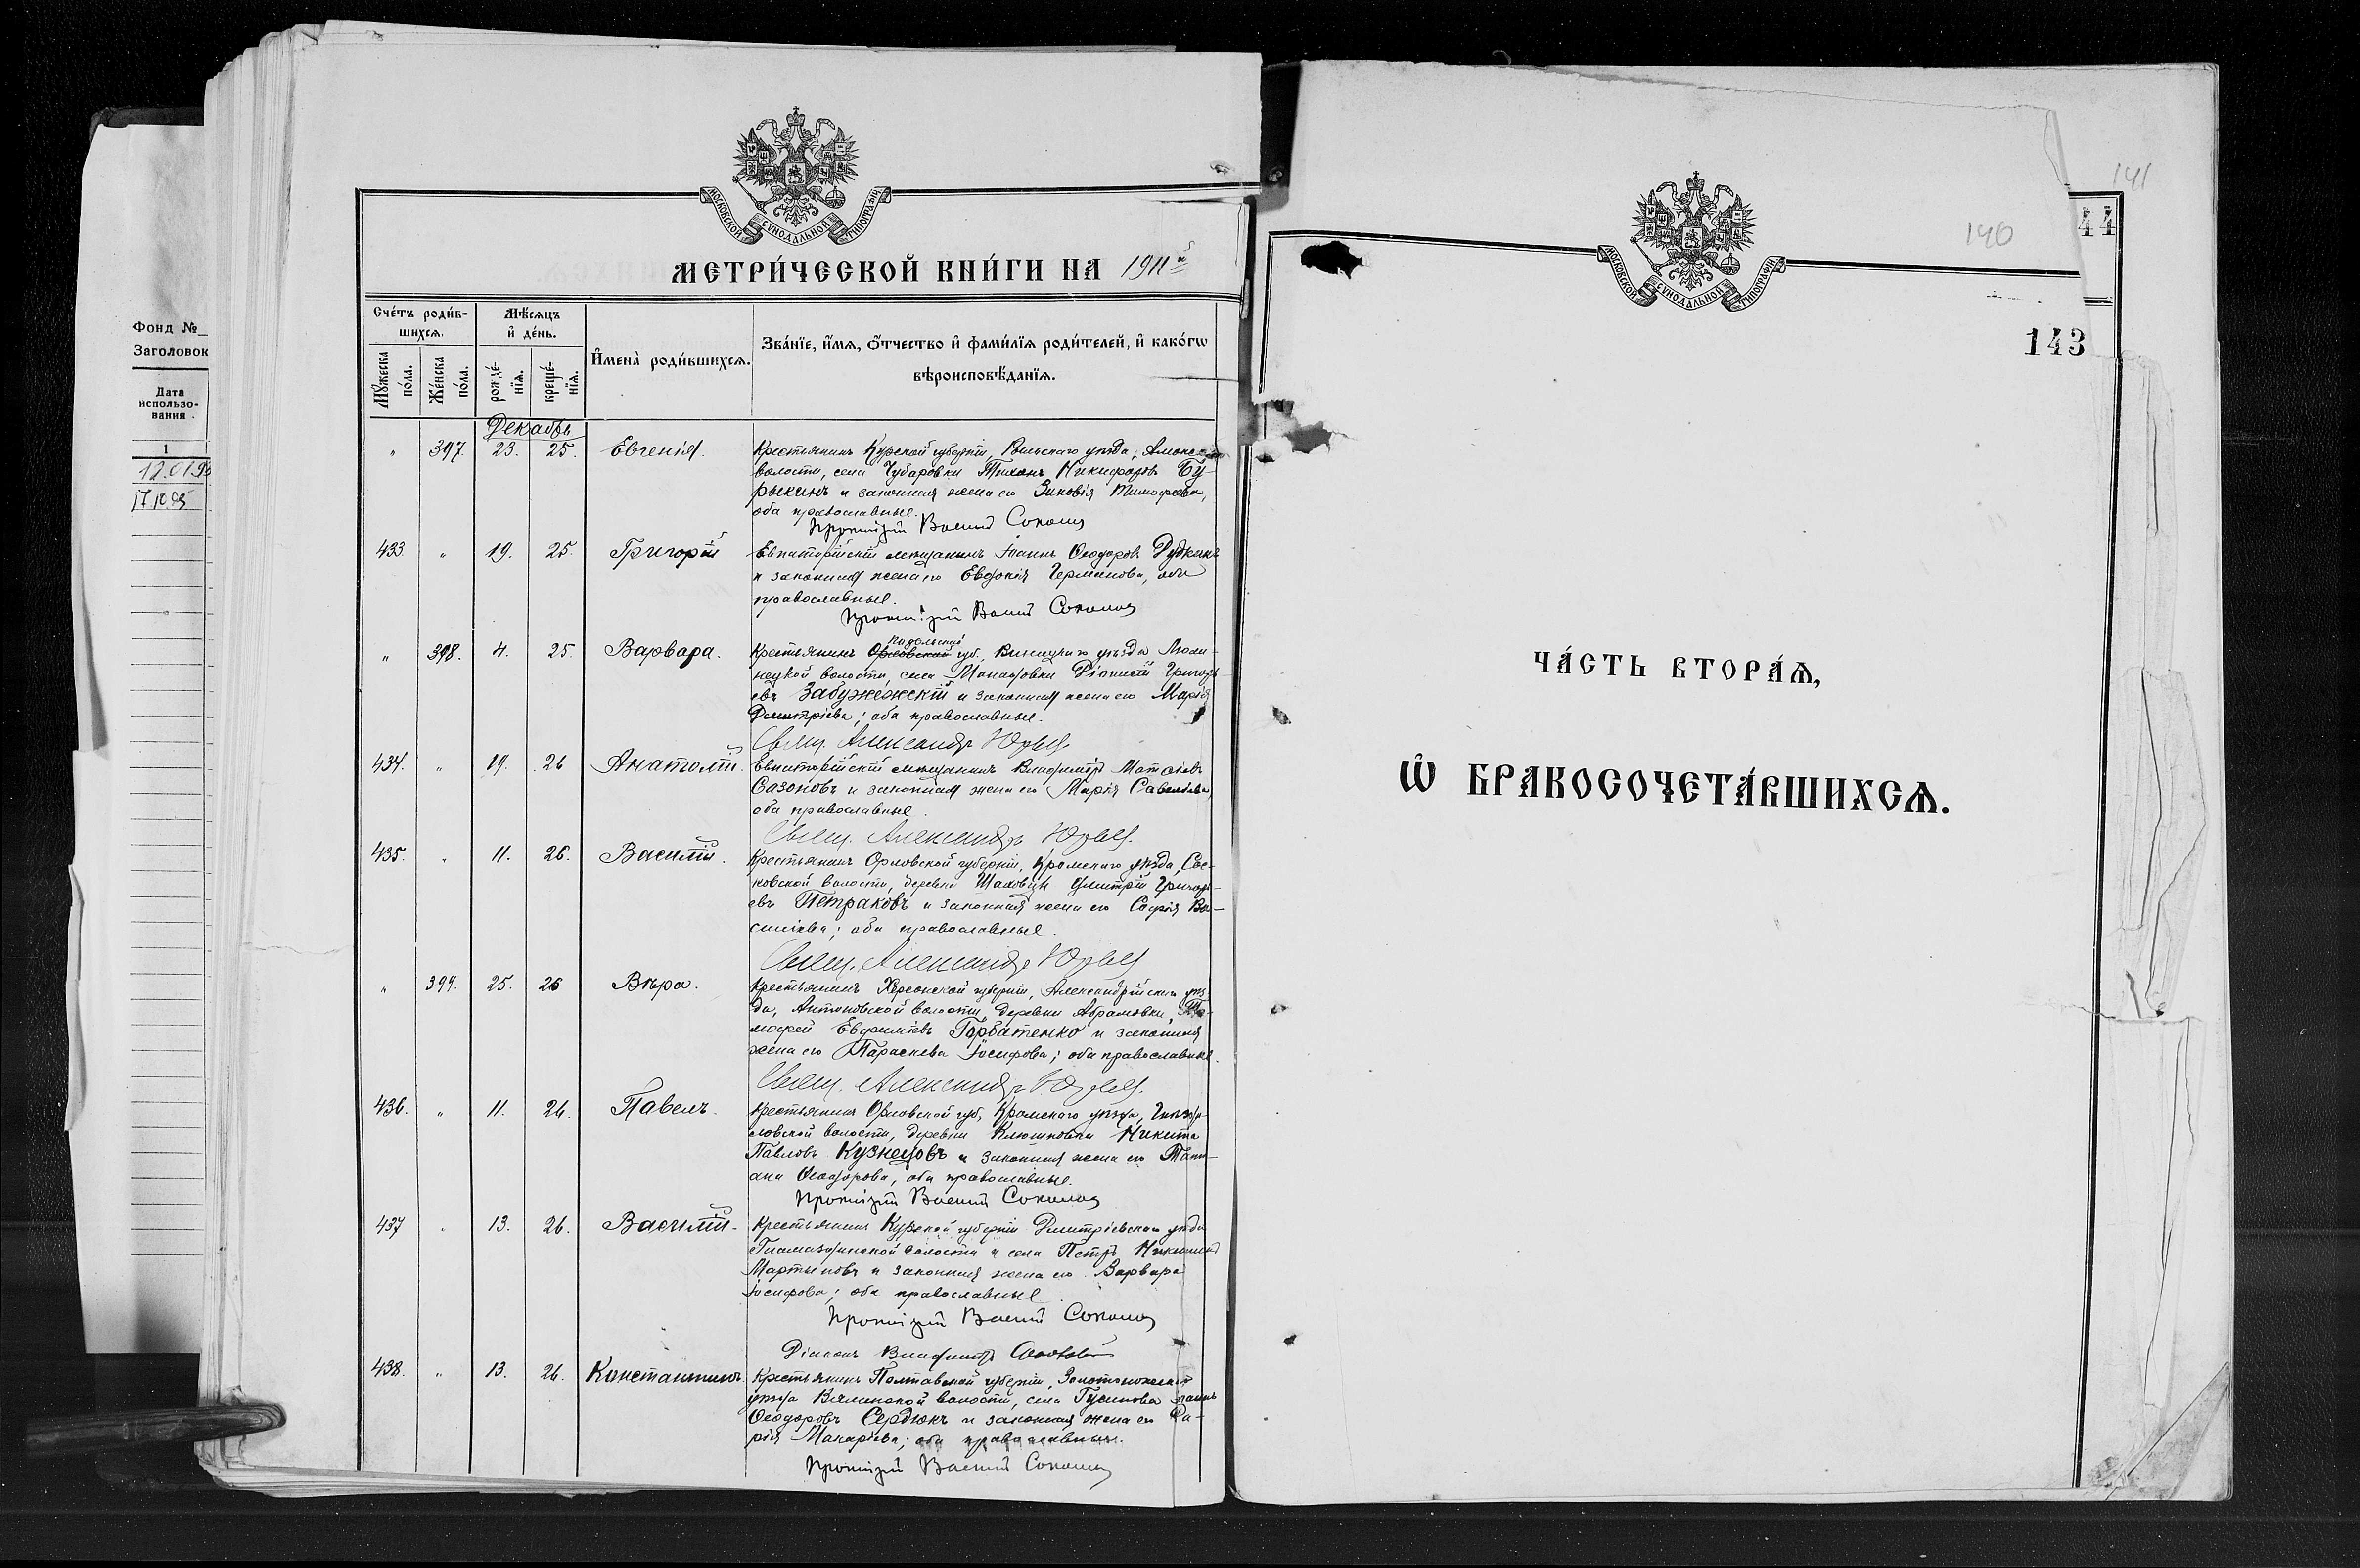 Фонд №
Заголовок
Дата
использо-
вания
1
12.01.93
17.10.95
МОСКОВСКОЙ СѴНОДАЛЬНОЙ ТИПОГРАФІИ
МЕТРИ́ЧЕСКОЙ КНИ́ГИ НА 1911й
Сче́тъ роди́в-
шихсѧ.
Мѣ́сѧцъ
и҆ де́нь.
И҆мена̀ роди́вшихсѧ.
Зва́нїе, и҆́мѧ, ѻ҆́тчество и҆ фами́лїѧ роди́телей, и҆ како́гѡ
вѣроисповѣ́данїѧ.
Мꙋ́жеска
по́ла.
Же́нска
по́ла.
рожде́-
нїѧ.
креще́-
нїѧ.
Декабрь
" 397. 23. 25. Евгенія.
Крестьянинъ Курской губерніи, Рыльскаго уѣзда,
волости, села Чубаровки Тихонъ Никифоровъ Бу-
рыкинъ и законная жена его Зиновія Тимофеева,
оба православные.
Протоіерей Василій Соколов
433. " 19. 25. Григорій
Евпаторійскій мещанинъ Іоаннъ Ѳеодоровъ Дудкинъ
и законная жена его Евдокія Германова, оба
православные.
Протоіерей Василій Соколов
" 398. 4. 25. Варвара.
Подольской
Крестьянинъ Орловской губ., Винницкаго уѣзда
нецкой волости, села Діонисій Григорь-
евъ Забужежскій и законная жена его Марія
Димитріева; оба православные.
Свящ. Александръ
434. " 19. 26 Анатолій.
Евпаторійскій мещанинъ Владиміръ Матѳіевъ
Сазоновъ и законная жена его Марія Савельева,
оба православные.
Свящ. Александръ
435. " 11. 26. Василій.
Крестьянинъ Орловской губерніи, Кромскаго уѣзда, Сос-
ковской волости, деревни Шаховцы Димитрій Григорь-
евъ Петраковъ и законная жена его Софія Ва-
силіева; оба православные.
Свящ. Александръ
" 399. 25. 26 Вѣра.
Крестьянинъ Херсонской губерніи, Александрійскаго уѣз-
да, Антоновской волости, деревни Абрамовки, Ти-
мофей Евфиміевъ Горбатенко и законная
жена его Параскева Іосифова; оба православные.
Свящ. Александръ
436. " 11. 26. Павелъ.
Крестьянинъ Орловской губ., Кромскаго уѣзда,
ловской волости, деревни Никита
Павловъ Кузнецовъ и законная жена его Тати-
ана Ѳеодорова, оба православные.
Протоіерей Василій Соколов
437 " 13. 26. Василій.
Крестьянинъ Курской губерніи Димитріевскаго уѣзда
волости и села Петръ
Мартыновъ и законная жена его Варвара
Іосифова; оба православные
Протоіерей Василій Соколов
Діаконъ Владиміръ
438. " 13. 26. Константинъ.
Крестьянинъ Полтавской губерніи, Золотоношскаго
уѣзда волости, села Іоаннъ
Ѳеодоровъ Сердюкъ и законная жена его Да-
рія Макаріева; оба православные.
Протоіерей Василій Соколов
141
44
140
МОСКОВСКОЙ СѴНОДАЛЬНОЙ ТИПОГРАФІИ
143
ЧА́СТЬ ВТОРА́Ѧ,
Ѡ҆ БРАКОСОЧЕТА́ВШИХСѦ.